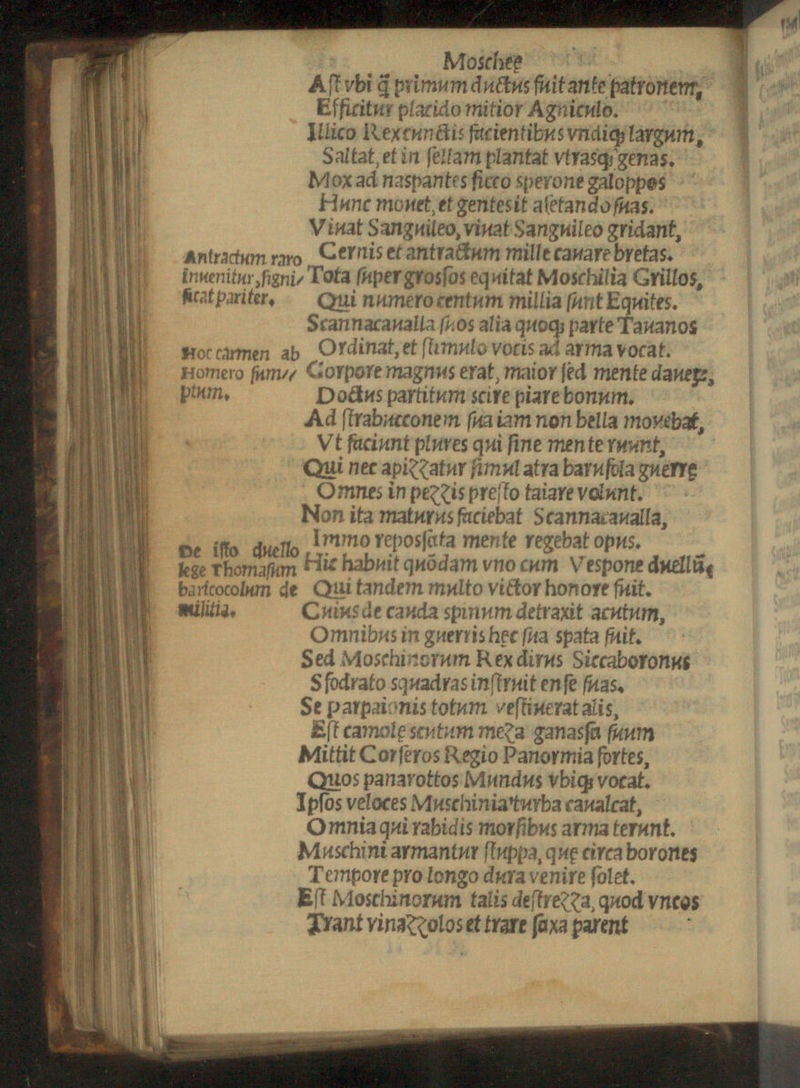 Moscheę
Aſt vbi q̃ primum ductus fuit ante patronem,
Efficitur placido mitior Agniculo.
Illico Rex cunctis facientibus vndiqꝫ largum,
Saltat, et in ſellam plantat vtrasqꝫ genas.
Mox ad naspantes ficco sperone galoppos
Hunc mouet, et gentes it aſetando ſuas.
Viuat Sanguileo, viuat Sanguileo gridant,
Cernis et antractum mille cauare bretas.
Antractum raro
inuenitur, ſigni/
ficat pariter.
Tota ſuper grosſos equitat Moschilia Grillos,
Qui numero centum millia ſunt Equites.
Scannacaualla ſuos alia quoqꝫ parte Tauanos
Ordinat, et ſtimulo vocis ad arma vocat.
Hoc carmen ab
Homero ſum//
ptum.
Corpore magnus erat, maior ſed mente daneꝝ,
Doctus partitum scire piare bonum.
Ad ſtrabucconem ſua iam non bella mouebat,
Vt faciunt plures qui ſine mente ruunt,
Qui nec apizzatur ſimul atra barufola guerrę
Omnes in pezzis preſto taiare volunt.
Non ita maturus faciebat Scannacaualla,
Immo reposſata mente regebat opus.
De iſto duello
lege Thomaſum
baricocolum de
militia.
Hic habuit quõdam vno cum Vespone duellũ,
Qui tandem multo victor honore fuit.
Cuius de cauda spinum detraxit acutum,
Omnibus in guerris hęc ſua spata fuit.
Sed Moschinorum Rex dirus Siccaboronus
Sfodrato squadras inſtruit enſe ſuas.
Se parpaionis totum veſtiuerat alis,
Eſt camolę scutum meza ganasſa ſuum
Mittit Corſeros Regio Panormia fortes,
Quos panarottos Mundus vbiqꝫ vocat.
Ipſos veloces Muschinia turba caualcat,
Omnia qui rabidis morſibus arma terunt.
Muschini armantur ſtuppa, quę circa borones
Tempore pro longo dura venire ſolet.
Eſt Moschinorum talis deſtrezza, quod vncos
Trant vinazzolos et trare ſaxa parent